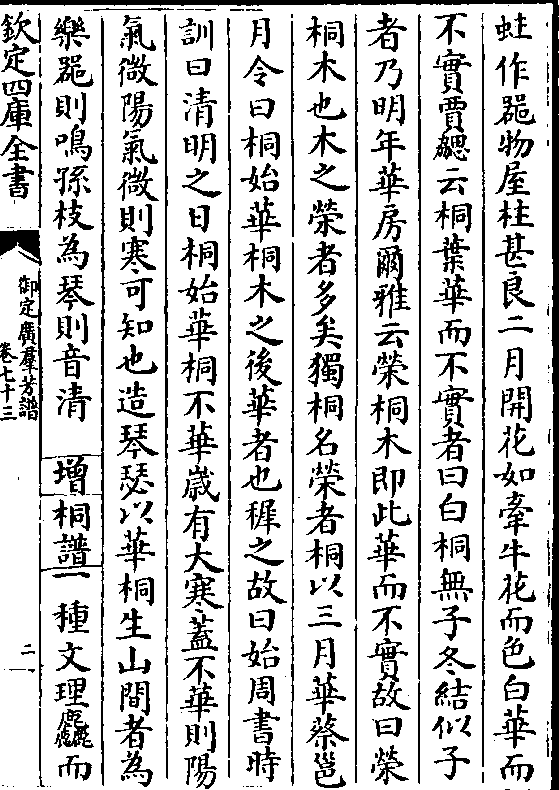 蛀作噐物屋柱甚良二月開花如牽牛花而色白華而
不實賈勰云桐葉華而不實者曰白桐無子冬結似子
者乃明年華房爾雅云榮桐木即此華而不實故曰榮
桐木也木之榮者多矣獨桐名榮者桐以三月華蔡邕
月令曰桐始華桐木之後華者也穉之故曰始周書時
訓曰清明之日桐始華桐不華歲有大寒蓋不華則陽
氣微陽氣微則寒可知也造琴瑟以華桐生山間者為
樂噐則鳴孫枝為琴則音清 增桐譜一種文理麤而
欽定四庫全書
御定廣羣芳譜
卷七十三
二